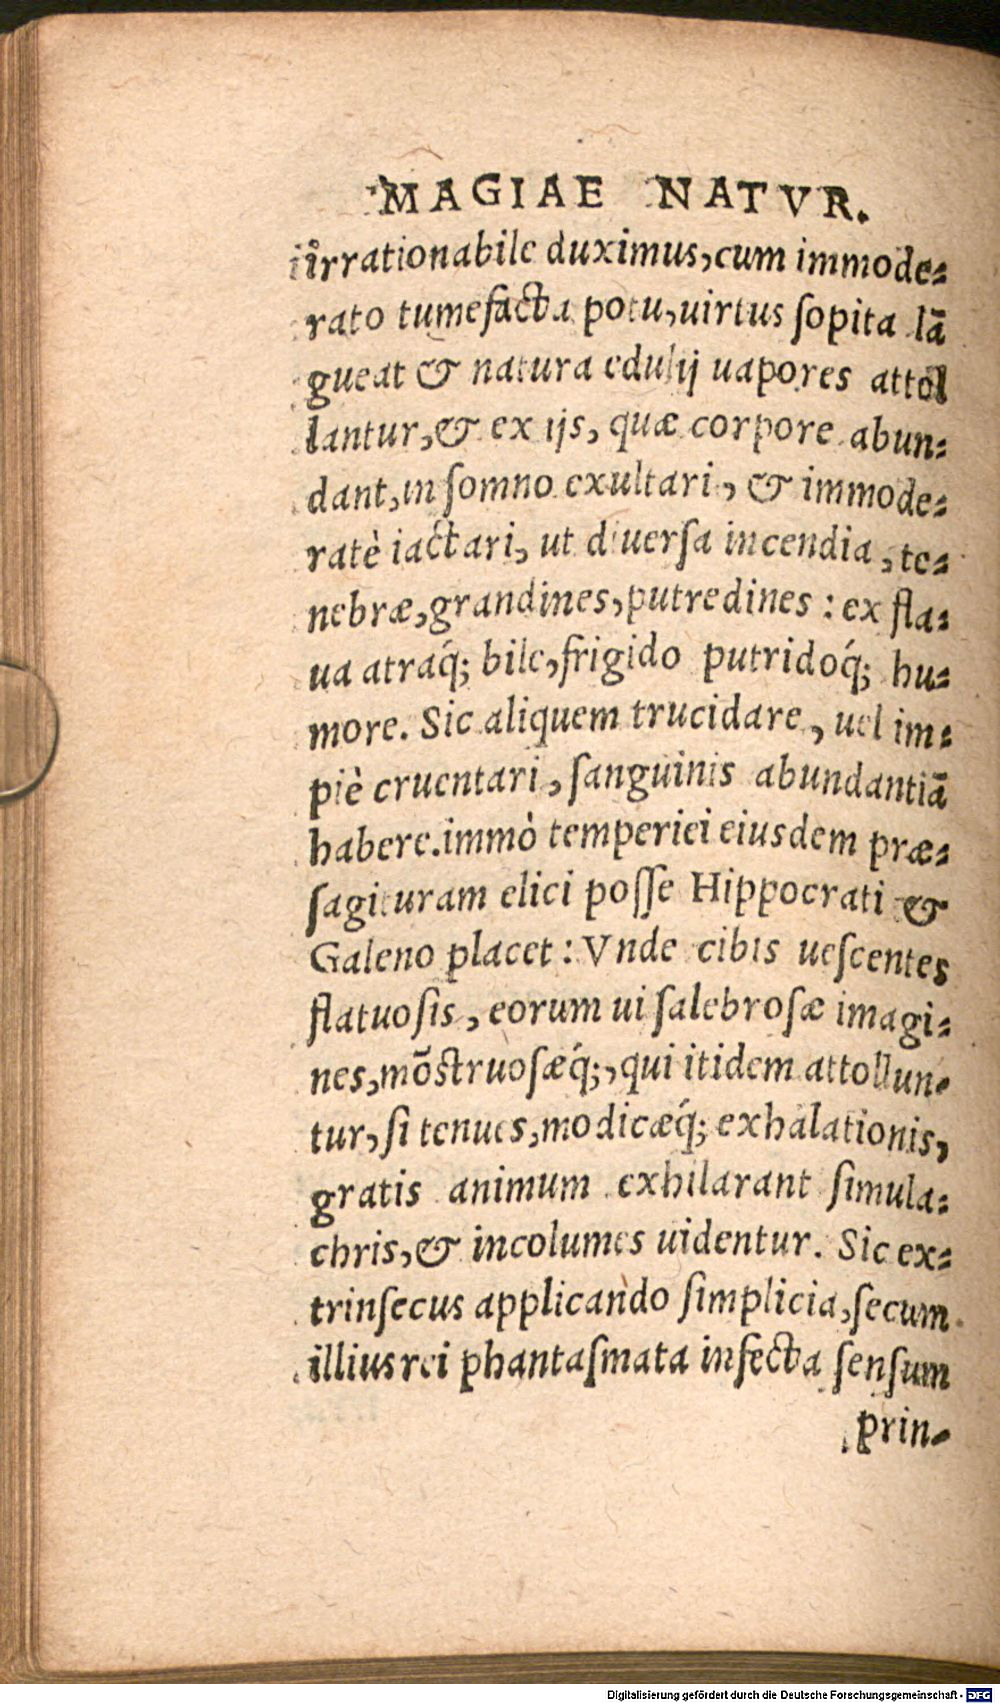 MAGIAE NATVR.
irrationabile duximus, cum immode-
rato tumefacta potu, uirtus ſopita lā
gueat & natura edulij uapores attol
lantur, & ex ijs, quæ corpore abun-
dant, in ſomno exultari, & immode-
ratè iactari, ut diuerſa incendia, te-
nebræ, grandines, putredines: ex fla-
ua atraq́; bile, frigido putridoq́; hu-
more. Sic aliquem trucidare, uel im-
piè cruentari, ſanguinis abundantiā
habere. immò temperiei eiusdem præ-
ſagituram elici poſſe Hippocrati &
Galeno placet: Vnde cibis ueſcentes
flatuoſis, eorum ui ſalebroſæ imagi-
nes, mōſtruoſæq́;, qui itidem attollun-
tur, ſi tenues, modicæq́; exhalationis,
gratis animum exhilarant ſimula-
chris, & incolumes uidentur. Sic ex-
trinſecus applicando ſimplicia, ſecum
illius rei phantaſmata infecta ſenſum
prin-
Digitalisierung gefördert durch die Deutsche Forschungsgemeinschaft - DFG